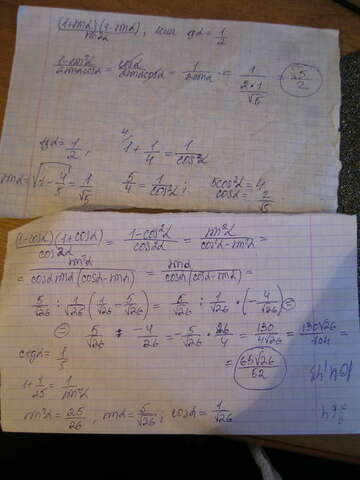 (1+sinα)(1-sinα) / sin2α, если tgα = 1/2
1-sin²α / 2sinαcosα = cos²α / 2sinαcosα = 1 / 2sinα = 1 / (2·1/√5) = √5/2
tgα = 1/2, 1 + 1/4 = 1/cos²α
sinα = √(1 - 4/5) = 1/√5 5/4 = 1/cos²α ; 5cos²α = 4
cosα = 2/√5
(1-cosα)(1+cosα) / cos2α = 1-cos²α / cos2α = sin²α / cos²α-sin²α =
= sin²α / cosα sinα(cosα-sinα) = sinα / cosα(cosα-sinα) =
= 5/√26 : 1/√26 (1/√26 - 5/√26) = 5/√26 : 1/√26 · (-4/√26) =
= 5/√26 : -4/26 = -5/√26 · 26/4 = 130/4√26 = 130√26/104 =
ctgα = 1/5 = 65√26/52
1 + 1/25 = 1/sin²α
sin²α = 25/26, sinα = 5/√26 ; cosα = 1/√26